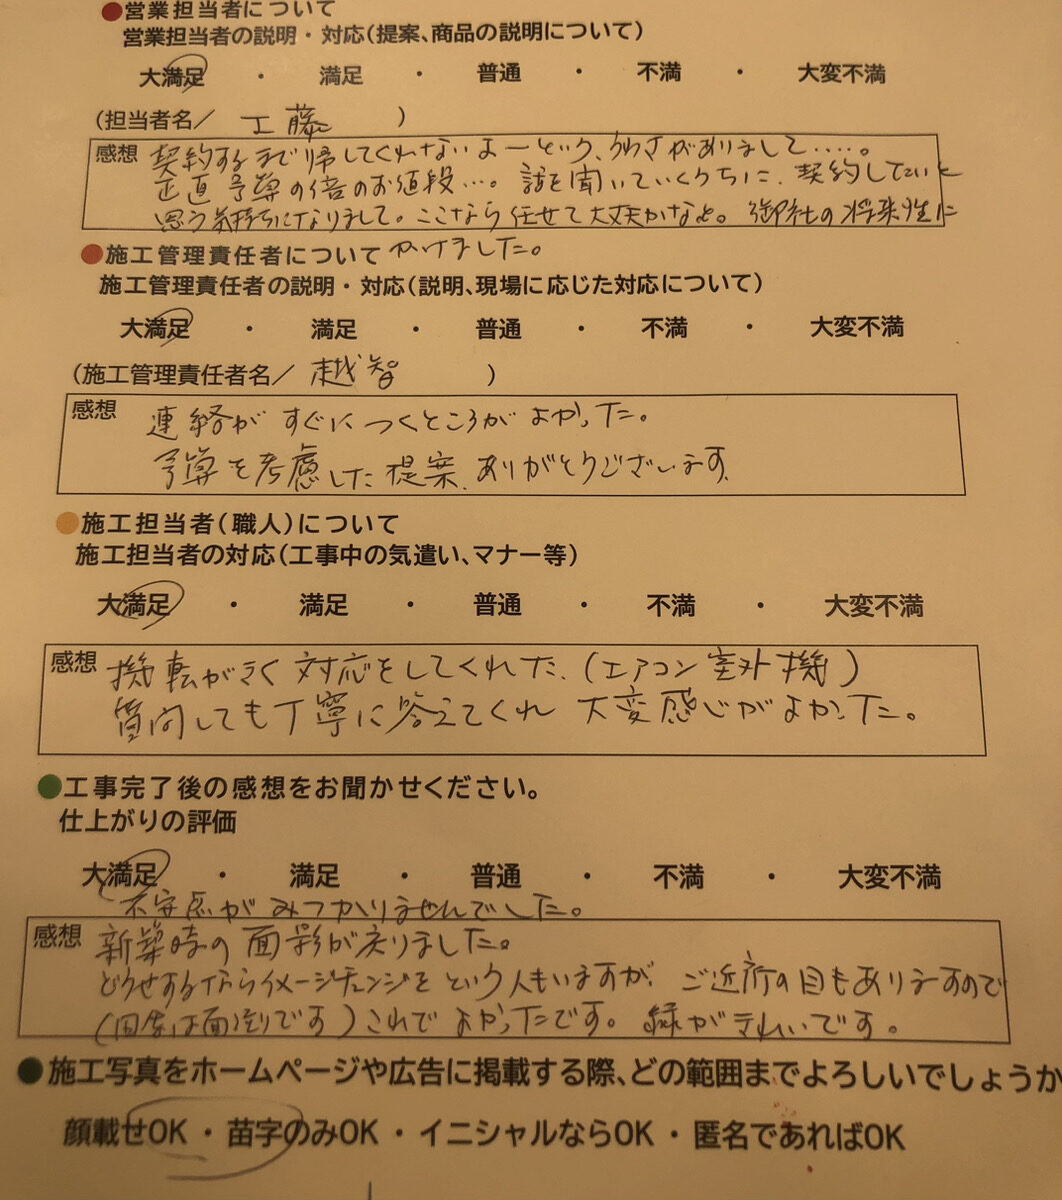 ●営業担当者について
営業担当者の説明・対応(提案、商品の説明について)
大満足 ・ 満足 ・ 普通 ・ 不満 ・ 大変不満
(担当者名/ 工藤 )
感想 契約するまで帰してくれないよーという、うわさがありまして‥‥‥。
正直予算の倍のお値段…。話を聞いていくうちに、契約したいと
思う気持ちになりまして。ここなら任せて大丈夫かなと。御社の将来性に
かけました。
●施工管理責任者について
施工管理責任者の説明・対応(説明、現場に応じた対応について)
大満足 ・ 満足 ・ 普通 ・ 不満 ・ 大変不満
(施工管理責任者名/ 越智 )
感想 連絡がすぐにつくところがよかった。
予算を考慮した提案、ありがとうございます。
●施工担当者(職人)について
施工担当者の対応(工事中の気遣い、マナー等)
大満足 ・ 満足 ・ 普通 ・ 不満 ・ 大変不満
感想 機転がきく対応をしてくれた、(エアコン室外機)
質問しても丁寧に答えてくれ 大変感じがよかった。
●工事完了後の感想をお聞かせください。
仕上がりの評価
大満足 ・ 満足 ・ 普通 ・ 不満 ・ 大変不満
不安点がみつかりませんでした。
感想 新築時の面影が戻りました。
どうせするならイメージチェンジをという人もいますが、ご近所の目もありますので
これでよかったです。緑がきれいです。
●施工写真をホームページや広告に掲載する際、どの範囲までよろしいでしょうか
顔載せOK・苗字のみOK・イニシャルならOK・匿名であればOK